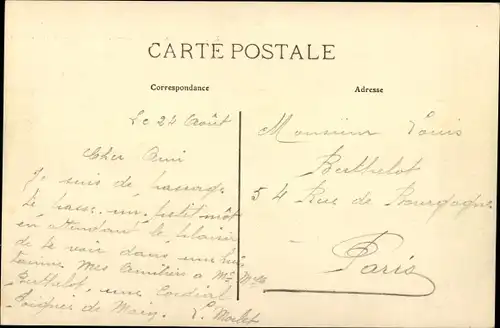 CARTE POSTALE
Correspondance
Adresse
Le 24 Août
Cher Ami
Je suis de passage
te passe un petit mot
en attendant le plaisir
de te voir dans une
Mes Amitiés à Mr Mme
Berthelot, une Cordial
Poignée de Main.
Monsieur Louis
Berthelot
54 Rue de Bourgogne
Paris